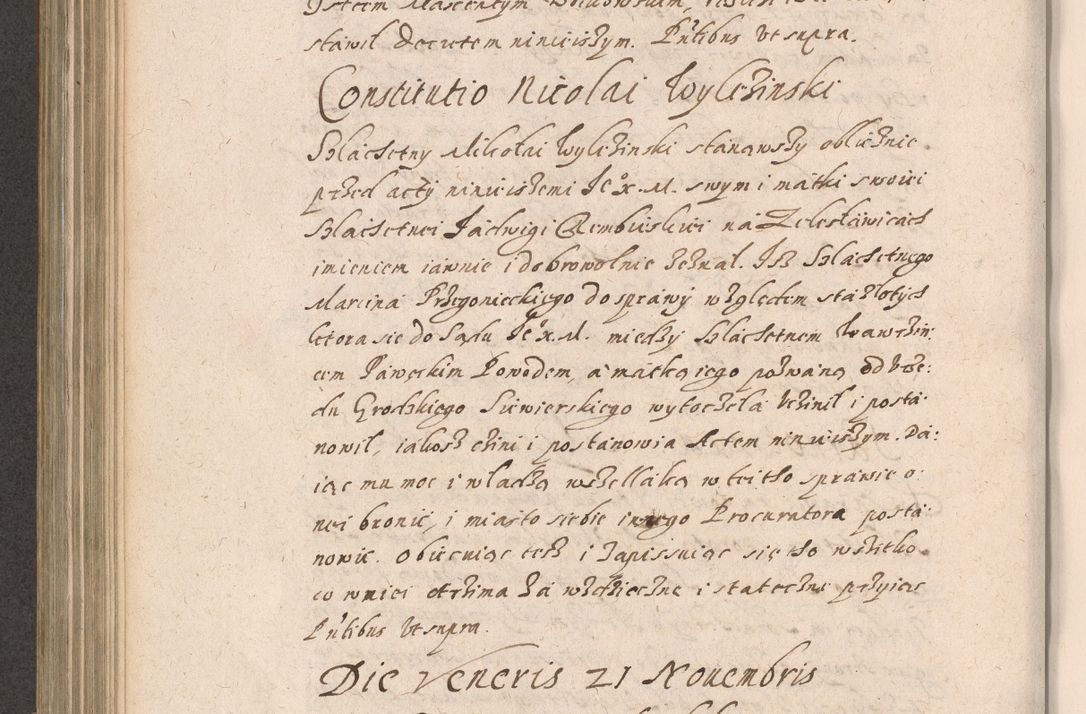 stawil Decretem ninieiszym. Pntibus Vt supra.
Constitutio Nicolai Wylezinski
Szlachetny Mikołai Wylezinski stanąwszy oblicznie
przed acty ninieiszemi Jeox. M. swym i matki swoiei
szlachetnei Jadwigi na Zelesławicach
imieniem iawnie i dobrowolnie zeznal. Jsz szlachetnego
Marcina Przegonieckiego do sprawy względem sta złotych
ktora sie do Sądu Jeox. M. miedzy szlachetnem Wawrzin:
cem Pawęckim Powodem, a matką iego pozwaną od Vrze:
du Grodzkiego Siewierskiego wytoczela Vczinil i posta:
nowil, iakosz czini i postanowia Actem ninieiszym. Da:
iąc mu moc i wladzą wszellaką w teitho sprawie o:
nei bronic, i miasto siebie inszego Procuratora posta:
nowic. Obiecuiąc tesz i Zapissuiąc się tho wszitko
co w niei otrzima za wdzieczne i stateczne prziiąc
Pntibus Vt supra.
Die Veneris 21 Nouembris